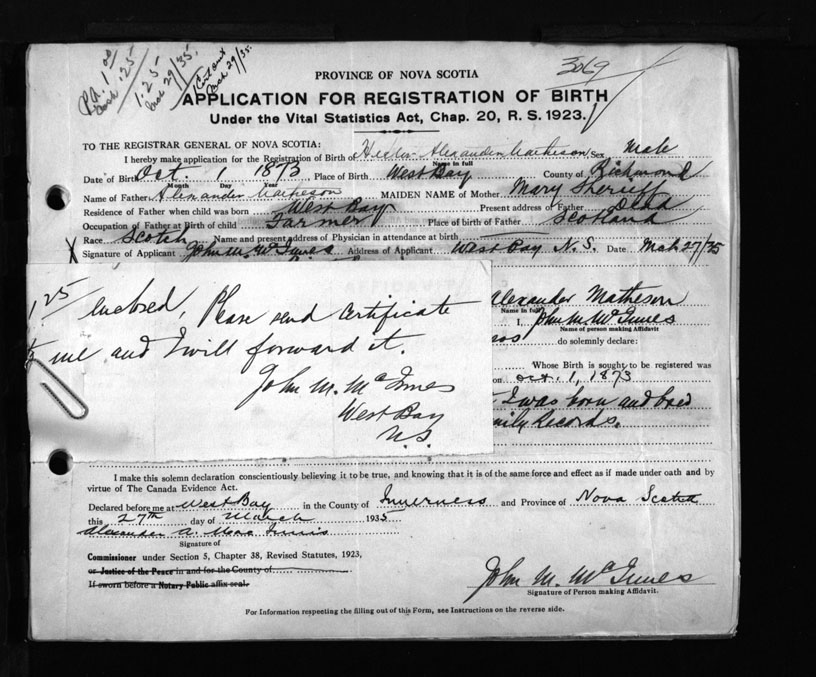 Pd. 1.00
Cash .25
1.25
Mch 29/35
Mch 29/35.
3069
PROVINCE OF NOVA SCOTIA
APPLICATION FOR REGISTRATION OF BIRTH
Under the Vital Statistics Act, Chap. 20, R. S. 1923.
TO THE REGISTRAR GENERAL OF NOVA SCOTIA:
I hereby make application for the Registration of Birth of Hector Alexander Matheson Sex Male
Name in full
Date of Birth Oct. 1 1873 Place of Birth West Bay County of Richmond
Month Day Year
Name of Father Alexander Matheson MAIDEN NAME of Mother Mary Sheriff
Residence of Father when child was born West Bay Present address of Father Dead
Occupation of Father at Birth of child Farmer Place of birth of Father Scotland
Race Scotch Name and present address of Physician in attendance at birth
X Signature of Applicant John M. McInnes Address of Applicant West Bay N.S. Date Mch 27/35
1.25 enclosed, Please send Certificate
to me and I will forward it.
John M. McInnes
West Bay
N.S.
Alexander Matheson
Name in full
I, John M. McInnes
Name of person making Affidavit
do solemnly declare:
Whose Birth is sought to be registered was
on Oct. 1, 1873
I was born and bred
Family Records.
I make this solemn declaration conscientiously believing it to be true, and knowing that it is of the same force and effect as if made under oath and by
virtue of The Canada Evidence Act.
Declared before me at West Bay in the County of Inverness and Province of Nova Scotia
this 27th day of March 1935
Alexander A. MacInnis
Signature of
Commissioner under Section 5, Chapter 38, Revised Statutes, 1923,
or Justice of the Peace in and for the County of
If sworn before a Notary Public affix seal.
John M. McInnes
Signature of Person making Affidavit.
For Information respecting the filling out of this Form, see Instructions on the reverse side.